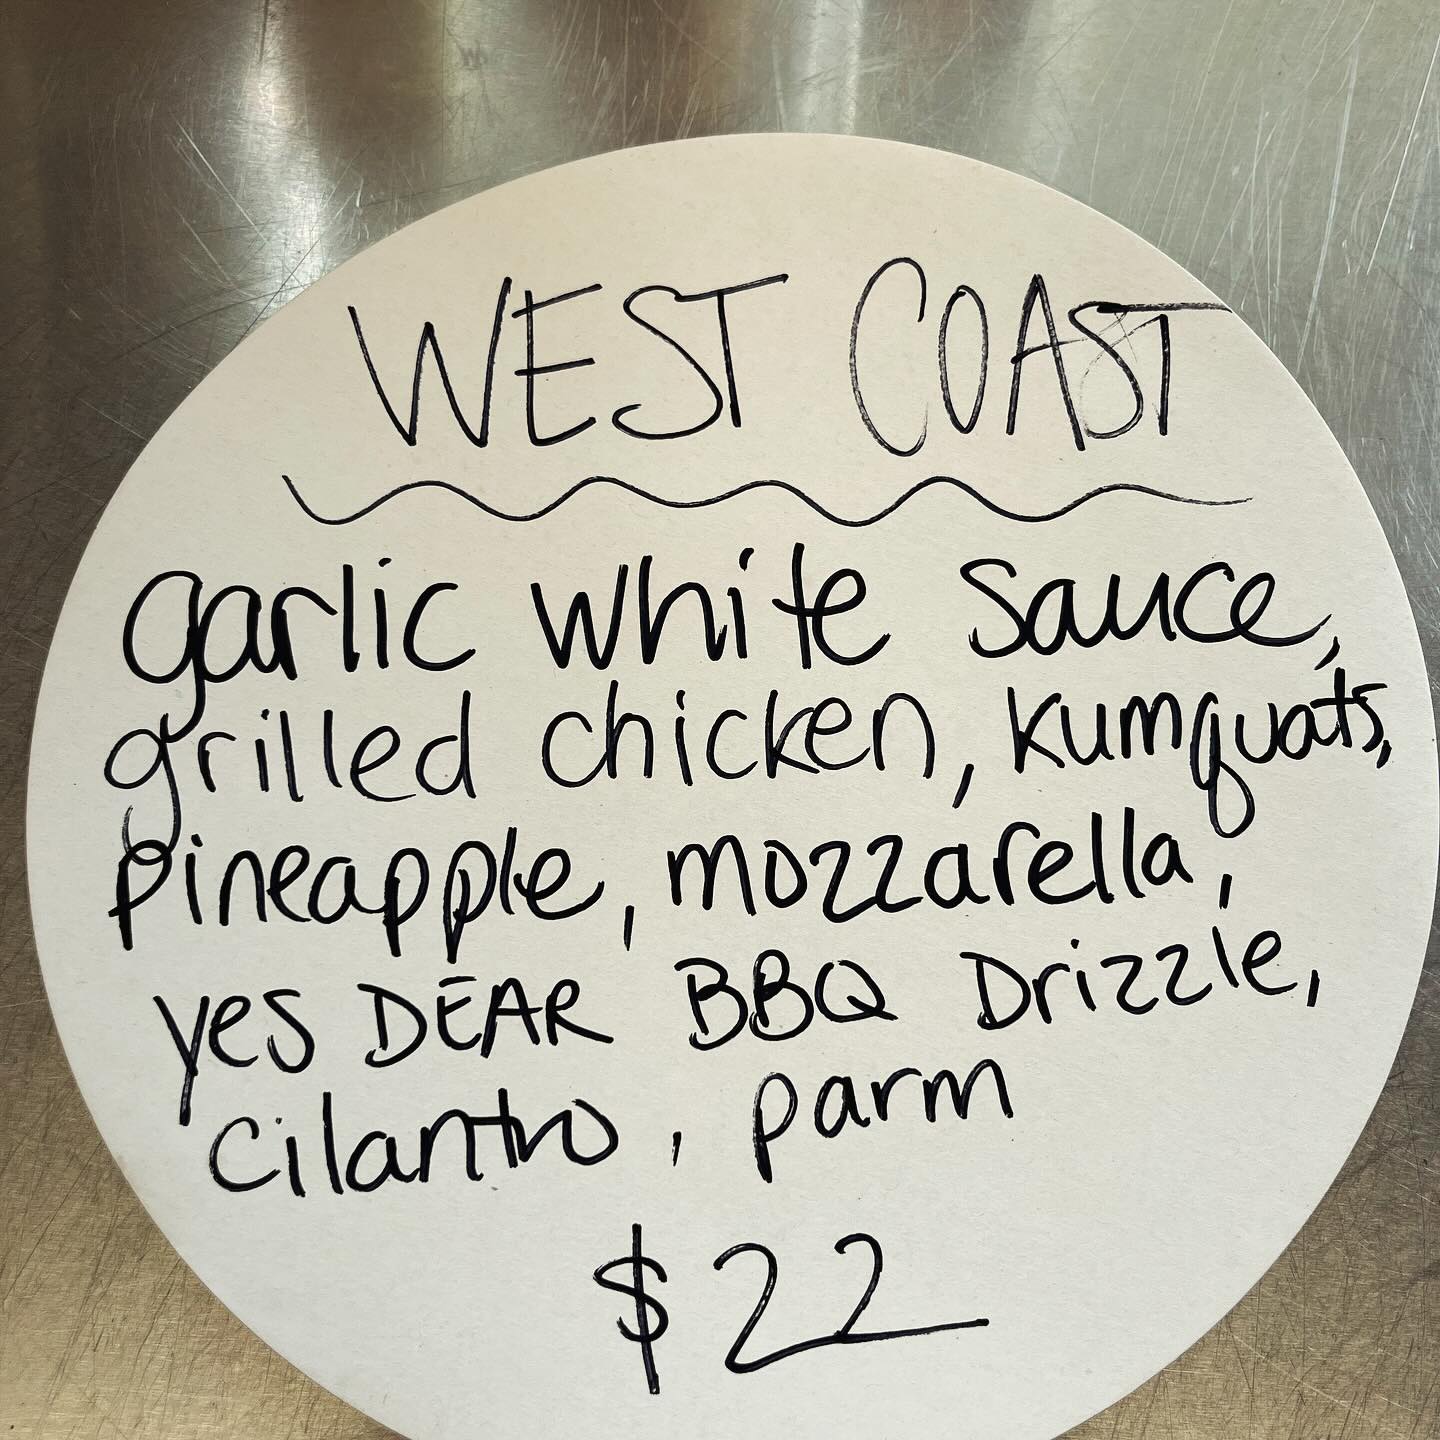 WEST COAST
garlic white sauce,
grilled chicken, kumquats,
pineapple, mozzarella,
yes DEAR BBQ Drizzle,
cilantro, parm
$22